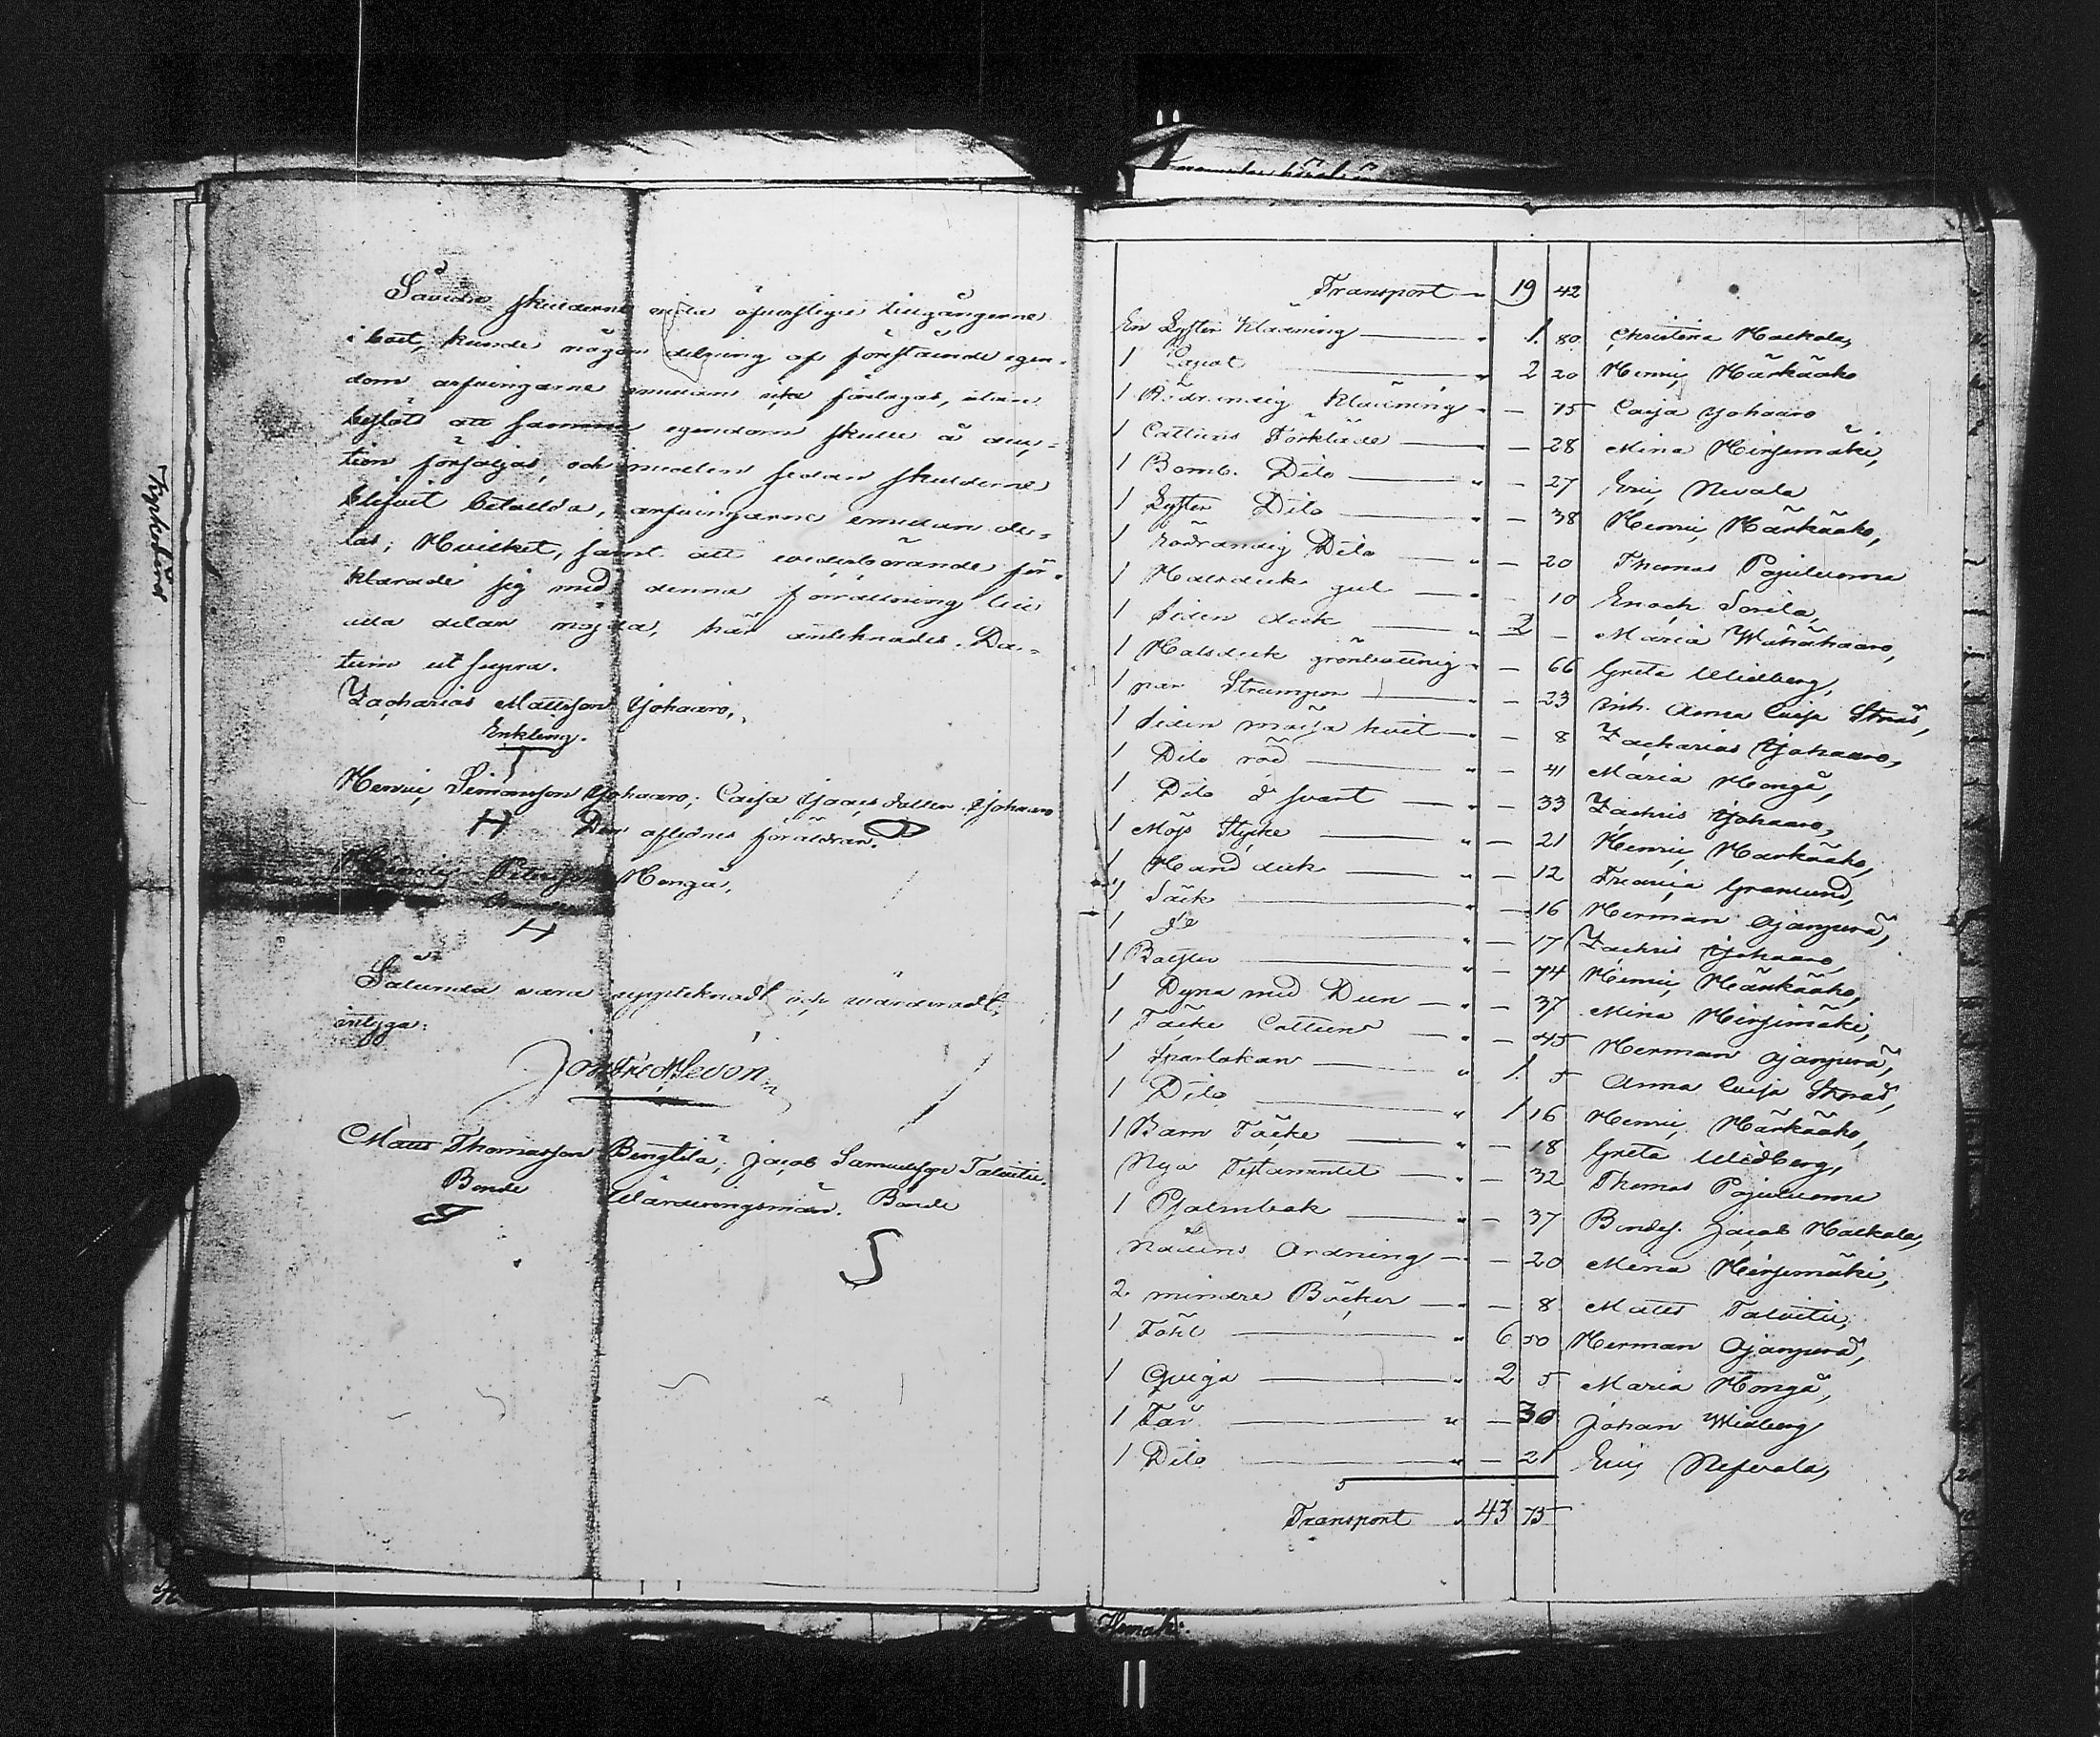 Såvida skulderna öfverstiga tillgångarne
i boet, kunde någon delning af förestående egen-
dom arfvingarne emellan icke företagas, utan
beslöts att samma egendom skulle å auc-
tion försäljas, och medlen sedan skulderne
blifvit betalda, arfvingarne emellan de-
las; Hvilket, samt att vederbörande för-
klarade sig med denna förrättning till
alla delar nöjda, här antecknades. Da-
tum ut supra.
Zacharias Mattsson Yjohaaro,
Enkling.
Henric Simonsson Yjohaaro; Caisa Dotter Yjohaaro
H Den aflednes föräldrar.
Henric Petersson Hongå,
H
Sålunda vara uppteknadt och värderadt,
intyga:
Matts Thomasson Bengtilä; Jacob Samuelsson Talvitie.
Bonde Wärderingsmän. Bonde
S
Kyrkoherd
Transport 19 42
En Lyster Klädning 1. 80. Christina Kackola,
1 2 20 Henric Härkäaho
1 Rödrandig Klädning — 75 Caisa Yjohaaro
1 Cattuns Förkläde — 28 Mina Hirsimäki,
1 Bomb. Dito — 27 Eric Nevala
1 Lyster Dito — 38 Henric Härkäaho,
1 rödrandig Dito — 20 Thomas Pajuluoma
1 Halsduk gul — 10 Enoch Sorila,
1 Siden duk 2 — Maria Wähähaaro,
1 Halsduk grönbottnig — 66 Greta Widberg,
1 par Strumpor — 23 Anna Caisa
1 Siden mössa hvit — 8 Zacharias Yjohaaro,
1 Dito röd — 41 Maria Hongå,
1 Dito d:o svart — 33 Zachris Yjohaaro,
1 Möss Stycke — 21 Henric Härkäaho,
1 Hand duk — 12 Fredrica Granlund,
1 Säck — 16 Herman Ojanperä,
1 d:o — 17 Zachris Yjohaaro,
1 Bolster — 74 Henric Härkäaho,
1 Dyna med Dun — 37 Mina Hirsimäki,
1 Täcke Cattuns — 45 Herman Ojanperä,
1 Sparlakan 1. 5 Anna Caisa
1 Dito 1 16 Henric Härkäaho,
1 Barn Täcke — 18 Greta Widberg,
Nya Testamentet — 32 Thomas Pajuluoma
1 Psalmbok — 37 Jacob Kackola,
Nådens Ordning — 20 Mina Hirsimäki,
2 mindre Böcker — 8 Matts Talvitie,
1 Fåhl 6 50 Herman Ojanperä,
1 Quiga 2 5 Maria Hongå,
1 Får — 30 Johan Widberg
1 Dito — 21 Eric Nefvala,
Transport 43 75